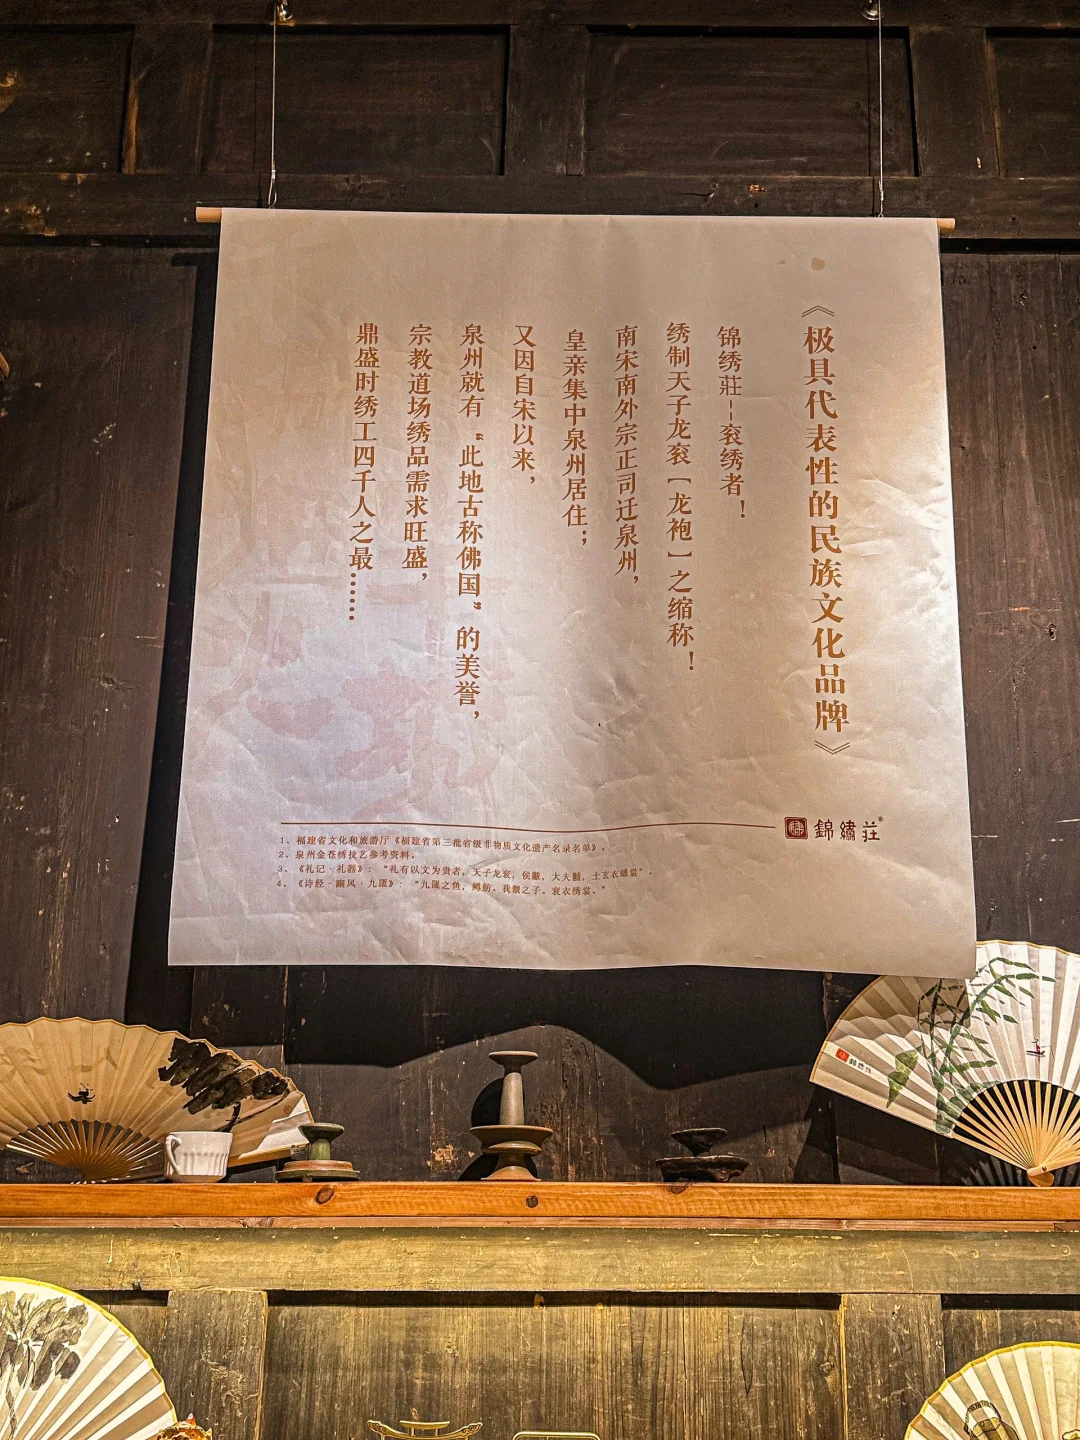 《极具代表性的民族文化品牌》
锦绣莊--衮绣者！
绣制天子龙衮［龙袍］之缩称！
南宋南外宗正司迁泉州，
皇亲集中泉州居住；
又因自宋以来，
泉州就有“此地古称佛国”的美誉，
宗教道场绣品需求旺盛，
鼎盛时绣工四千人之最……
錦繡莊®
1、福建省文化和旅游厅《福建省第三批省级非物质文化遗产名录名单》。
2、泉州金苍绣技艺参考资料。
3、《礼记·礼器》：“礼有以文为贵者，天子龙衮，侯黼，大夫黻，士玄衣纁裳”。
4、《诗经·豳风·九罭》：“九罭之鱼，鳟鲂。我觏之子，衮衣绣裳。”
錦繡莊